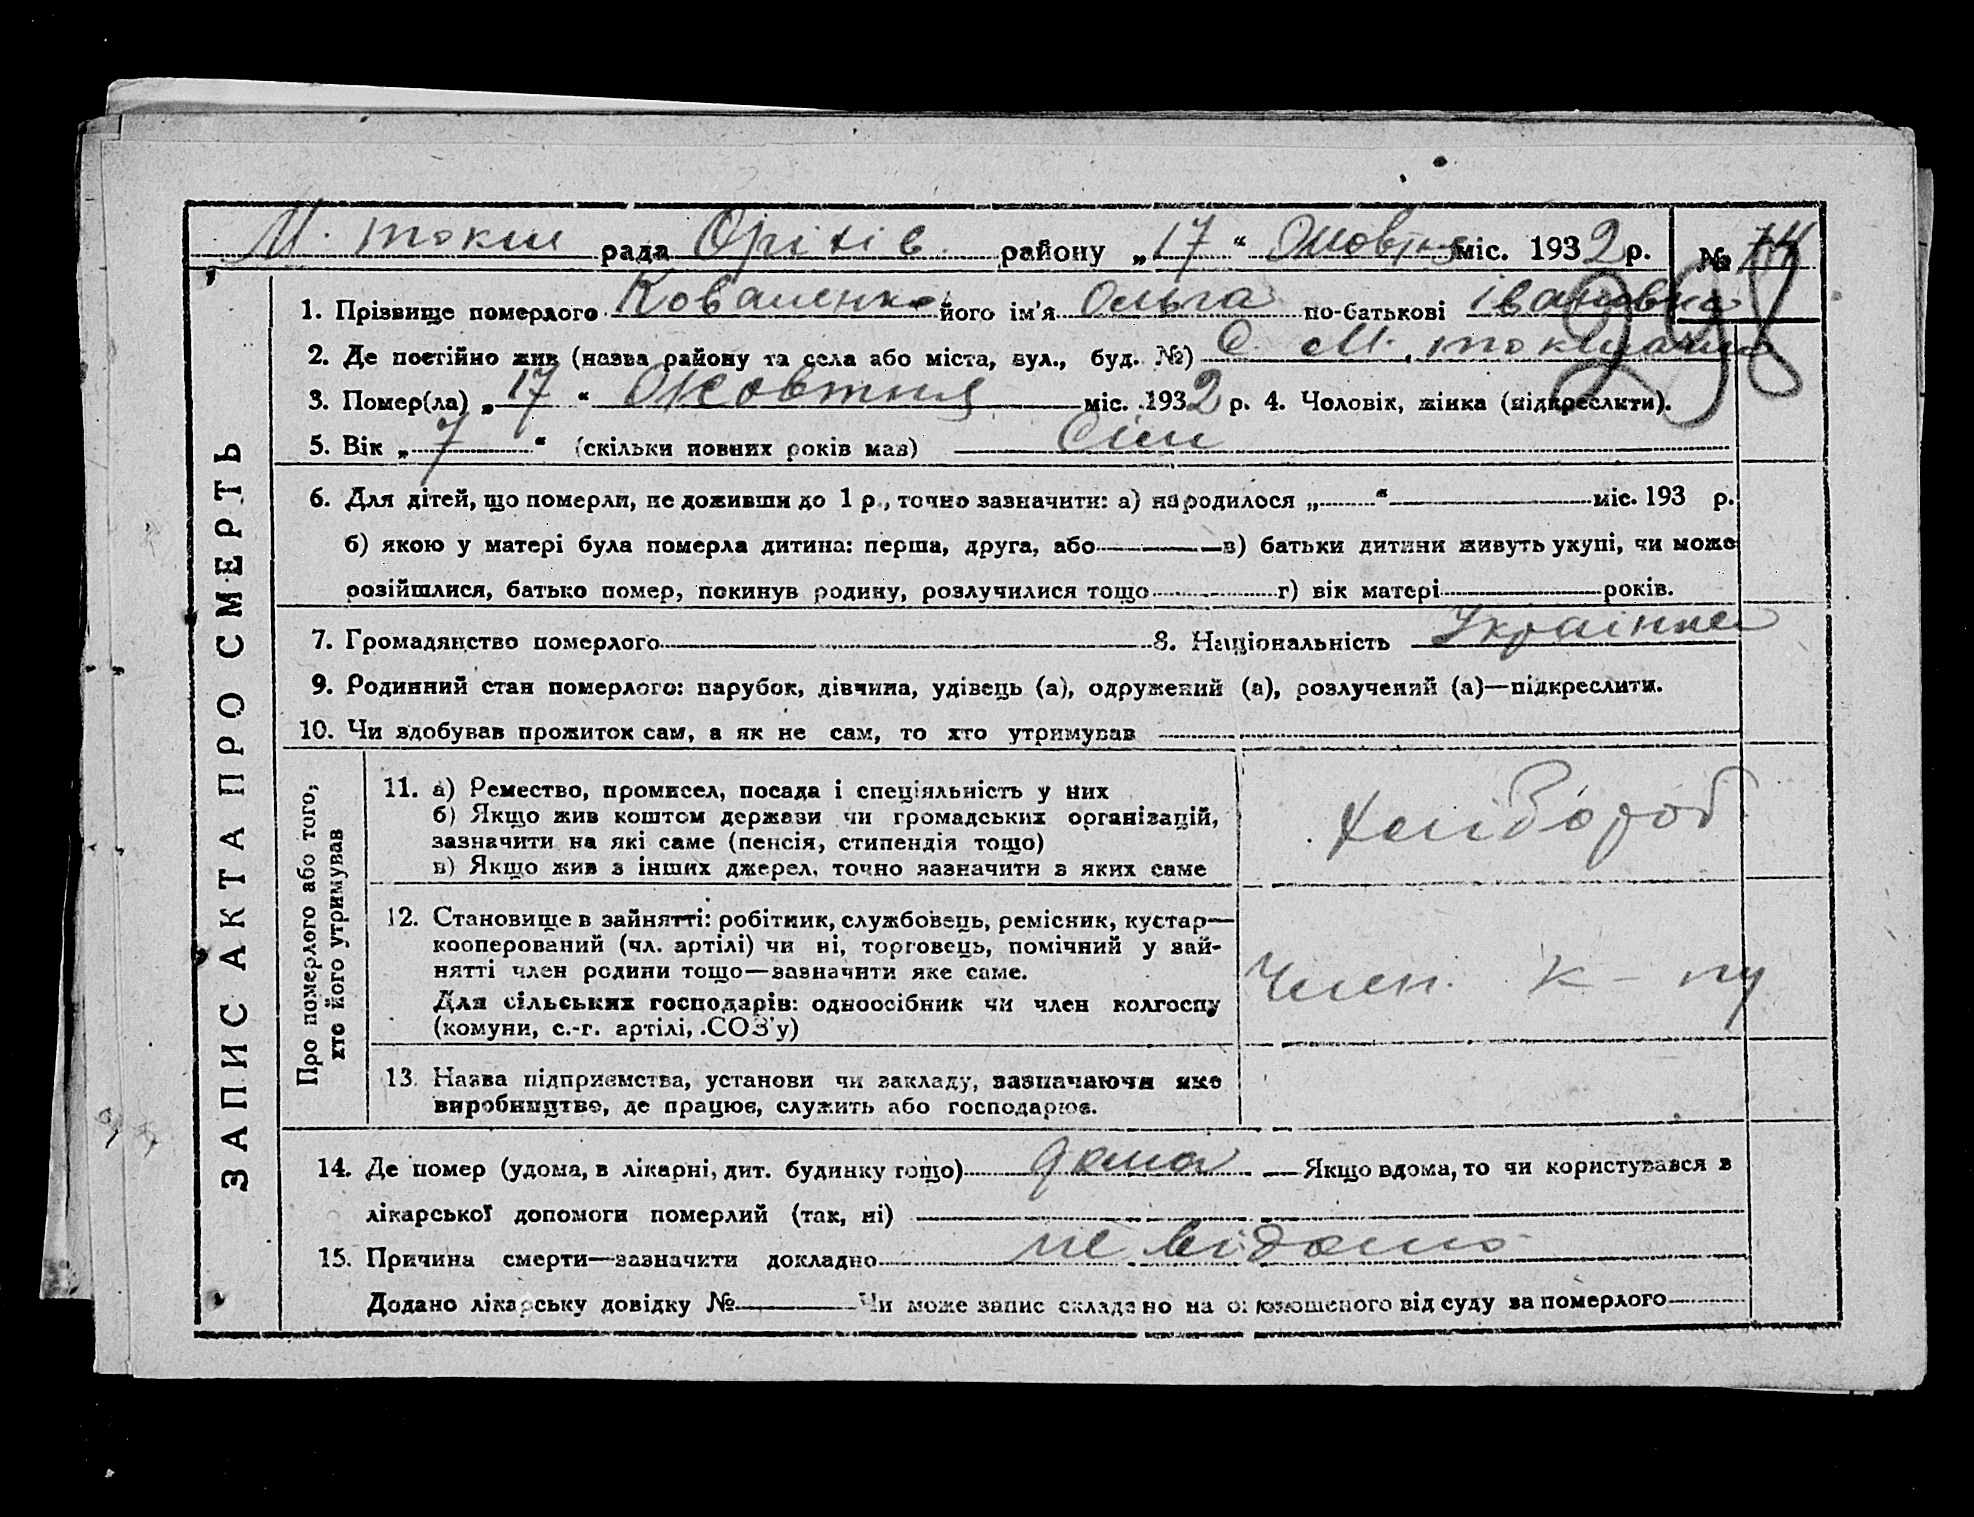 М. токм рада Оріхів району „17“ Жовтня міс. 1932 р. № 74
298
1. Прізвище померлого Коваленко його ім'я Ольга по-батькові Івановна
2. Де постійно жив (назва району та села або міста, вул., буд. №) С. М. токмачка
3. Помер(ла) „17“ Жовтня міс. 1932 р. 4. Чоловік, жінка (підкреслити).
5. Вік „7“ (скільки повних років мав) Сім
6. Для дітей, що померли, не доживши до 1 р., точно зазначити: а) народилося „ “ міс. 193 р.
б) якою у матері була померла дитина: перша, друга, або в) батьки дитини живуть укупі, чи може
розійшлися, батько помер, покинув родину, розлучилися тощо г) вік матері років.
7. Громадянство померлого 8. Національність Українка
9. Родинний стан померлого: парубок, дівчина, удівець (а), одружений (а), розлучений (а)—підкреслити.
10. Чи здобував прожиток сам, а як не сам, то хто утримував
ЗАПИС АКТА ПРО СМЕРТЬ
Про померлого або того,
хто його утримував
11. а) Ремество, промисел, посада і спеціяльність у них
б) Якщо жив коштом держави чи громадських організацій,
зазначити на які саме (пенсія, стипендія тощо)
в) Якщо жив з інших джерел, точно зазначити з яких саме
хлібороб
12. Становище в зайнятті: робітник, службовець, ремісник, кустар—
кооперований (чл. артілі) чи ні, торговець, помічний у зай-
нятті член родини тощо—зазначити яке саме.
Для сільських господарів: одноосібник чи член колгоспу
(комуни, с.-г. артілі, СОЗ'у)
Член. к-пу
13. Назва підприємства, установи чи закладу, зазначаючи яке
виробництво, де працює, служить або господарює.
14. Де помер (удома, в лікарні, дит. будинку тощо) дома Якщо вдома, то чи користувався з
лікарської допомоги померлий (так, ні)
15. Причина смерти—зазначити докладно не відомо
Додано лікарську довідку № Чи може запис складено на оголошеного від суду за померлого